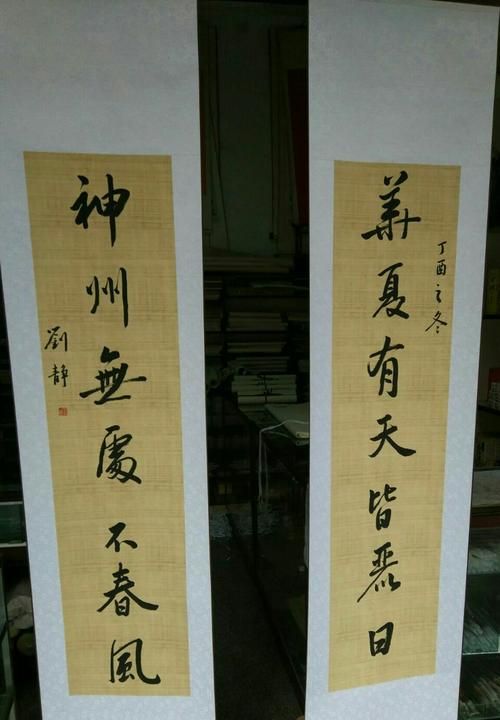 華夏有天皆麗日
丁酉之冬
神州無處不春風
劉靜